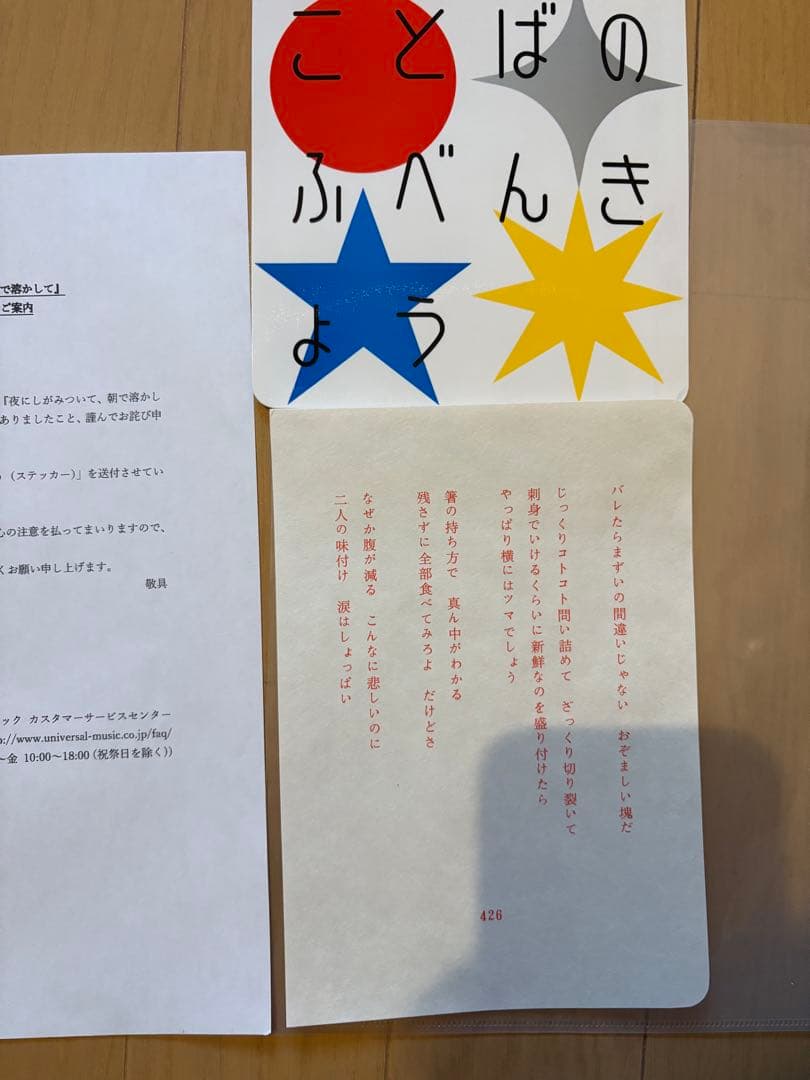 ことばの
ふべんき
ょう
で溶かして』
ご案内
『夜にしがみついて、朝で溶かし
ありましたこと、謹んでお詫び申
（ステッカー）」を送付させてい
心の注意を払ってまいりますので、
くお願い申し上げます。
敬具
ック カスタマーサービスセンター
://www.universal-music.co.jp/faq/
～金 10:00～18:00（祝祭日を除く））
バレたらまずいの間違いじゃない　おぞましい塊だ
じっくりコトコト問い詰めて　ざっくり切り裂いて
刺身でいけるくらいに新鮮なのを盛り付けたら
やっぱり横にはツマでしょう
箸の持ち方で　真ん中がわかる
残さずに全部食べてみろよ　だけどさ
なぜか腹が減る　こんなに悲しいのに
二人の味付け　涙はしょっぱい
426